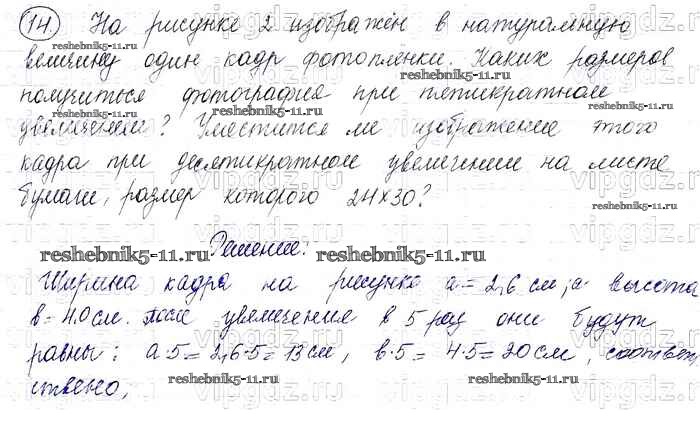 14. На рисунке 2 изображён в натуральную
reshebnik5-11.ru
величину один кадр фотопленки. Каких размеров
reshebnik5-11.ru
получиться фотография при пятикратном
reshebnik5-11.ru
увеличении? Уместится ли изображение этого
кадра при десятикратном увеличении на листе
бумаги, размер которого 24×30?
reshebnik5-11.ru
Решение:
reshebnik5-11.ru
reshebnik5-11.ru
Ширина кадра на рисунке a = 2,6 см; а высота
в = 4.0 см. После увеличения в 5 раз они будут
равны: a·5 = 2,6·5 = 13 см, в·5 = 4·5 = 20 см, соответ,
ствено,
reshebnik5-11.ru
reshebnik5-11.ru
vipgdz.ru